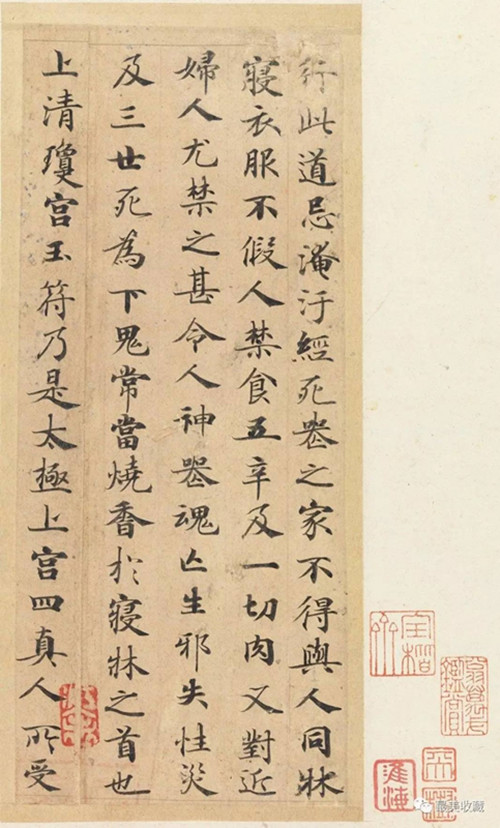 行此道忌淹汙經死喪之家不得與人同牀
寢衣服不假人禁食五辛及一切肉又對近
婦人尤禁之甚令人神喪魂亡生邪失性災
及三世死為下鬼常當燒香於寢牀之首也
上清瓊宮玉符乃是太極上宮四真人所受
收藏